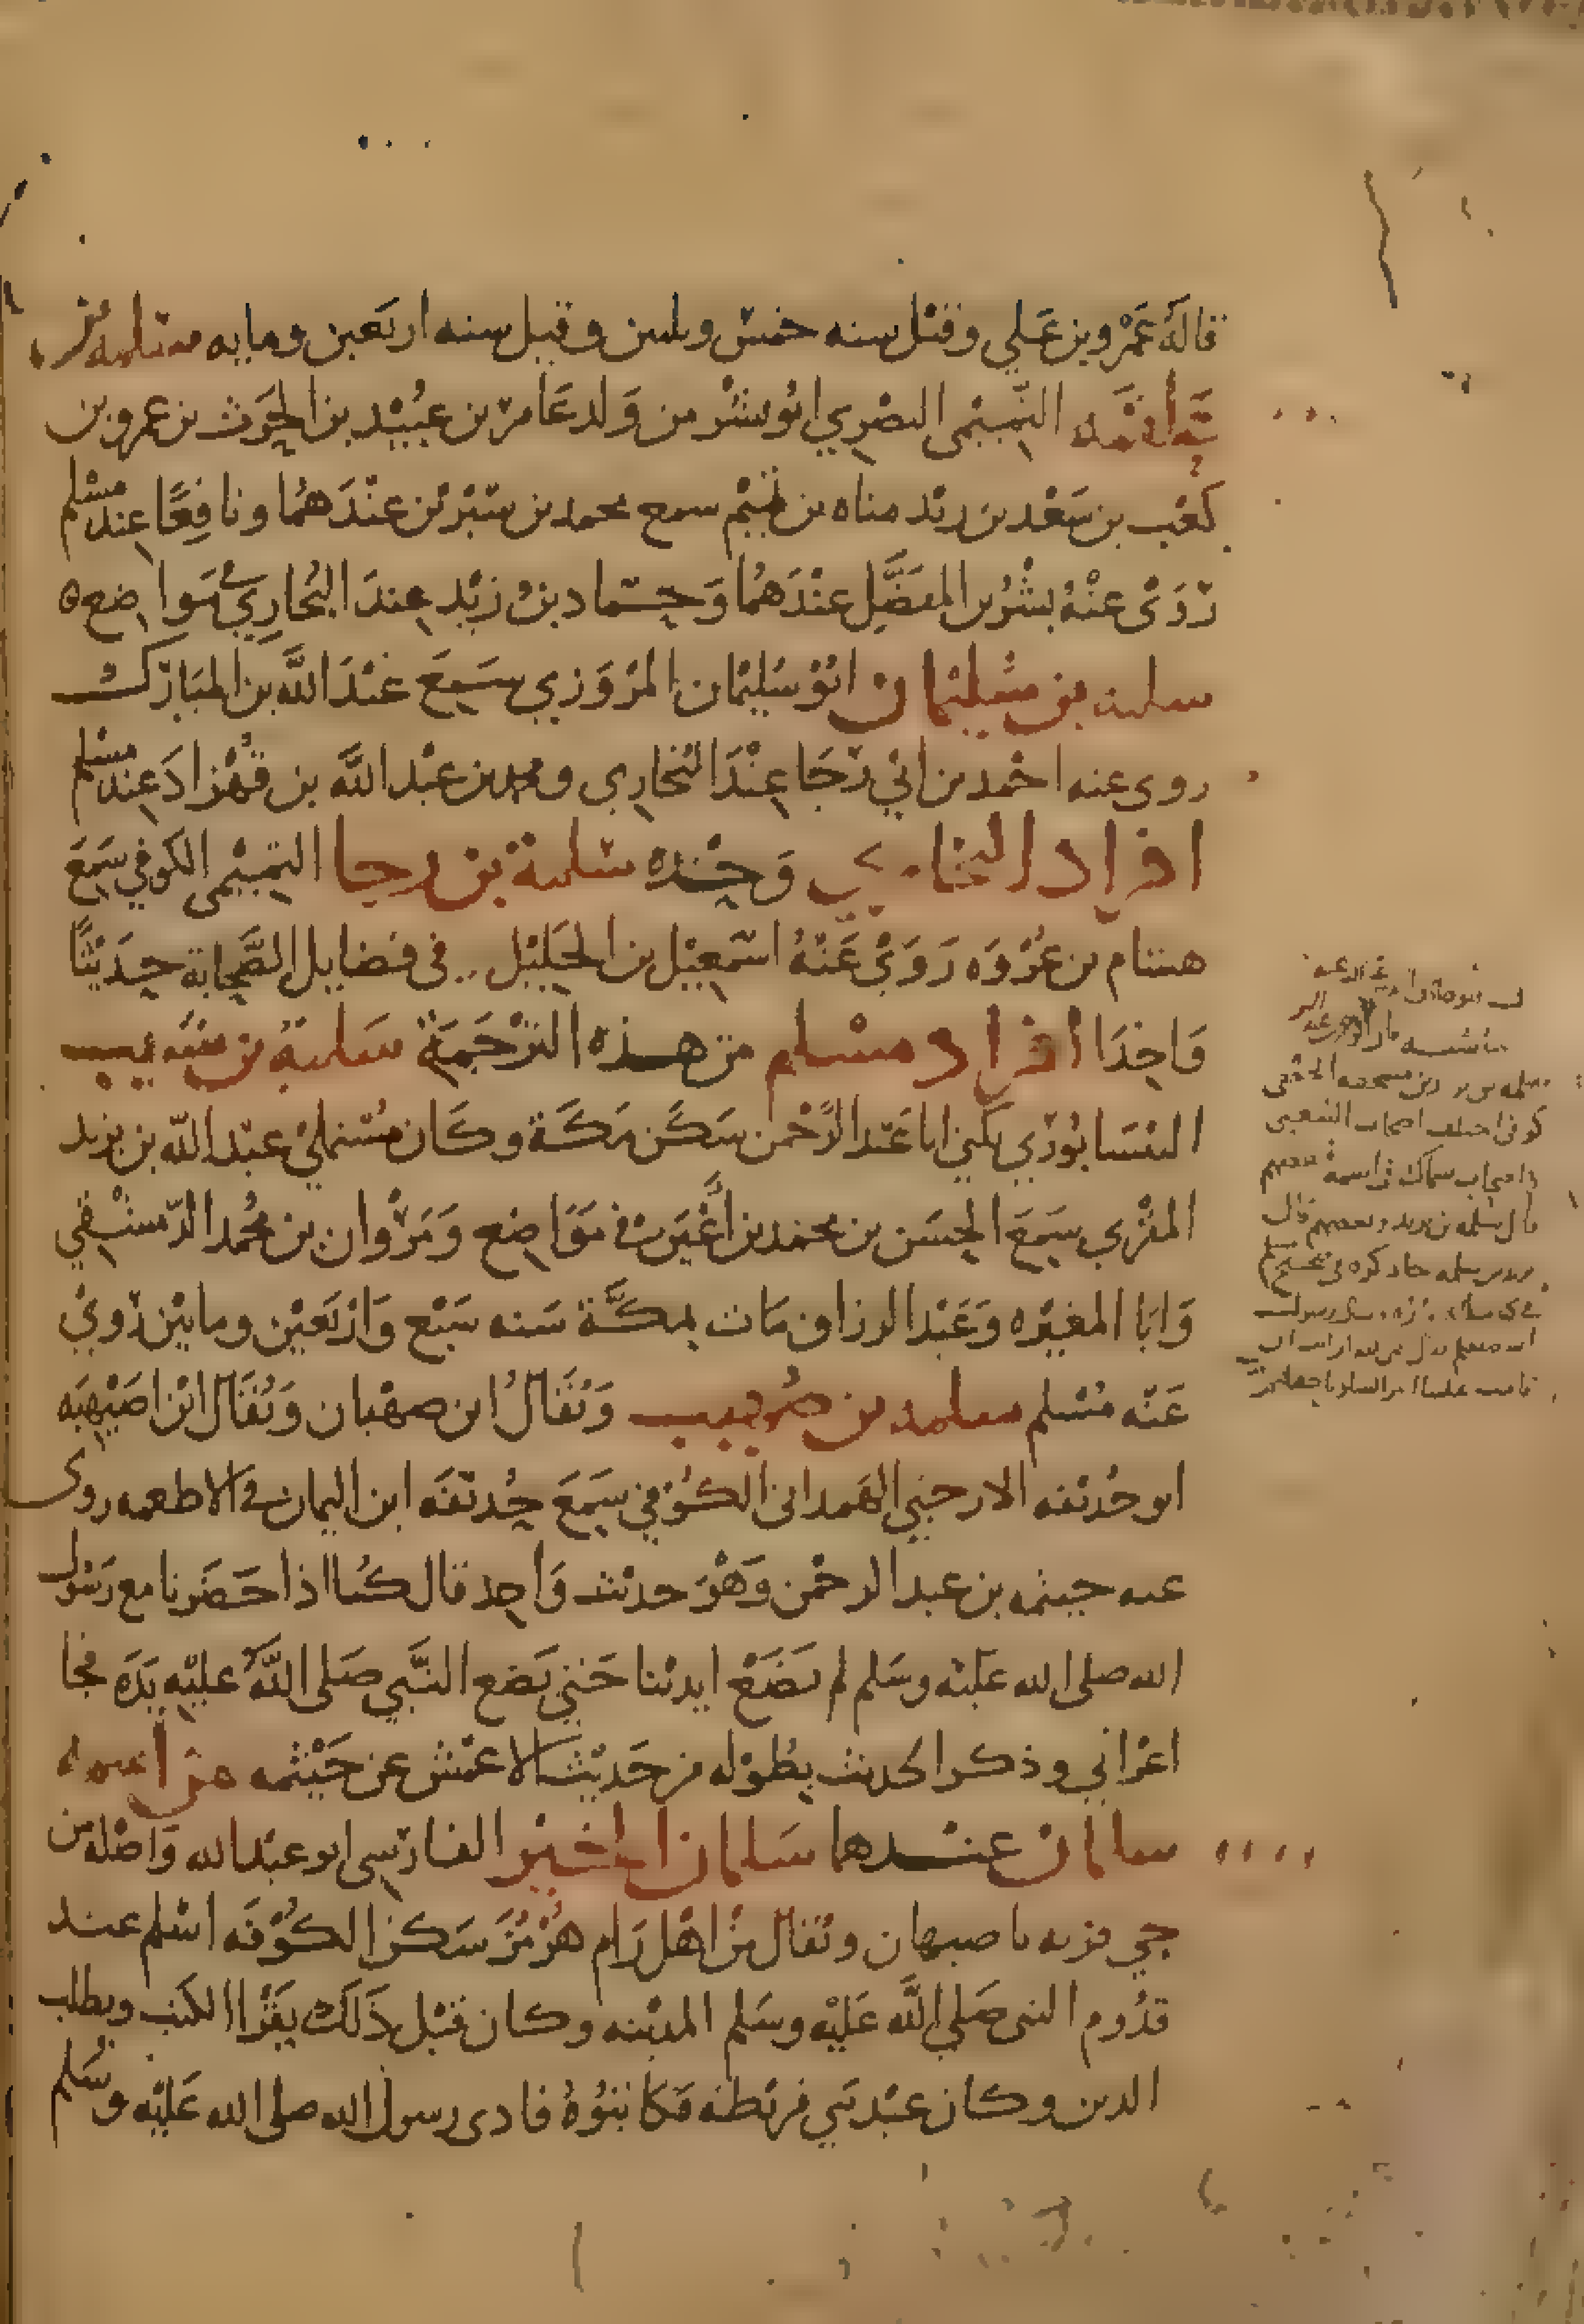 قاله عمرو بن علي وقتل سنه خمس وثلثين وقيل سنه اربعين ومايه سلمه بن
علقمه التميمي البصري ابو بشر من ولد عامر بن عبيد بن الحرث بن عمرو بن
كعب بن سعد بن زيد مناه بن تميم سمع محمد بن سيرين عندهما ونافعا عند مسلم
روى عنه بشر بن المفضل عندهما وحماد بن زيد عند البخاري في مواضع
سلمة بن سليمان ابو سليمان المروزي سمع عبد الله بن المبارك
روى عنه احمد بن ابي رجا عند البخاري ومحمد بن عبد الله بن قهزاد عند مسلم
افراد البخاري وحده سلمة بن رجا التميمي الكوفي سمع
هشام بن عروه روى عنه اسمعيل بن الخليل في فضايل الصحابة حديثا
واحدا افراد مسلم من هذه الترجمة سلمة بن شبيب
النيسابوري يكنى ابا عبد الرحمن سكن مكة وكان مستملي عبد الله بن يزيد
المقري سمع الحسن بن محمد بن أعين في مواضع ومروان بن محمد الدمشقي
وابا المغيره وعبد الرزاق مات بمكة سنه سبع واربعين ومايتين روى
عنه مسلم سلمه بن صهيب ويقال ابن صهبان ويقال ابن اصيهبه
ابو حذيفه الارحبي الهمداني الكوفي سمع حذيفه ابن اليمان في الاطعمه روى
عنه خيثمه بن عبد الرحمن وهو حديث واحد قال كنا اذا حضرنا مع رسول
الله صلى الله عليه وسلم لم نضع ايدينا حتى يضع النبي صلى الله عليه يده فجا
اعرابي وذكر الحديث بطوله من حديث الاعمش عن خيثمه من اسمه
سلمان عندهما سلمان الخير الفارسي ابو عبد الله واصله من
جي قريه باصبهان ويقال من اهل رام هرمز سكن الكوفه اسلم عند
قدوم النبي صلى الله عليه وسلم المدينه وكان قبل ذلك يقرا الكتب ويطلب
الدين وكان عبد بني قريظه فكاتبوه فادى رسول الله صلى الله عليه وسلم
كوفي اختلف اصحاب الشعبي
واصحاب سماك في اسمه فبعضهم
قال سلمه بن يزيد وبعضهم قال